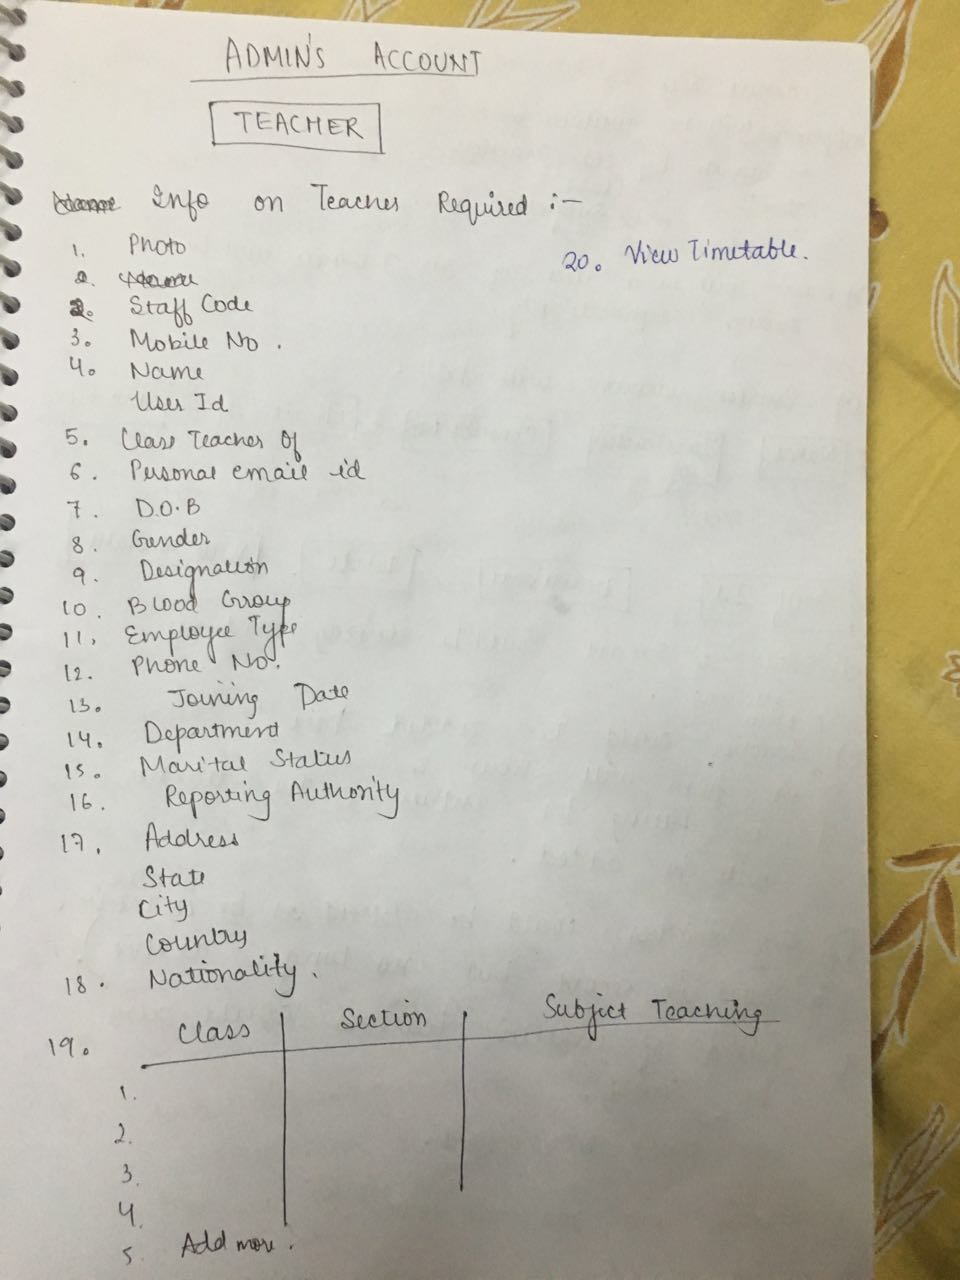 ADMIN'S ACCOUNT
TEACHER
Info on Teacher Required :-
1. Photo
2.
2. Staff Code
3. Mobile No.
4. Name
User Id
5. Class Teacher Of
6. Personal email id
7. D.O.B
8. Gender
9. Designation
10. Blood Group
11. Employee Type
12. Phone No.
13. Joining Date
14. Department
15. Marital Status
16. Reporting Authority
17. Address
State
City
Country
18. Nationality.
19. Class Section Subject Teaching
1.
2.
3.
4.
5. Add more.
20. View Timetable.